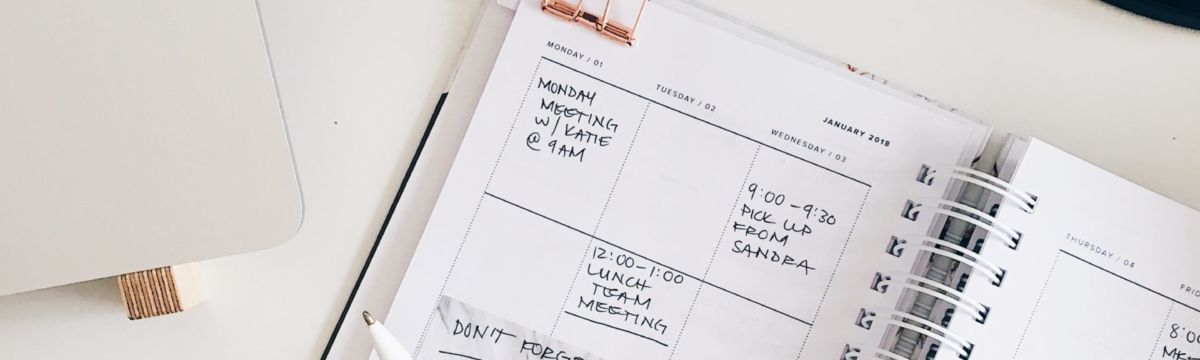 MONDAY / 01
MONDAY
MEETING
W/ KATIE
@ 9AM
TUESDAY / 02
12:00-1:00
LUNCH
TEAM
MEETING
JANUARY 2018
WEDNESDAY / 03
9:00-9:30
PICK UP
FROM
SANDRA
DON'T
THURSDAY / 04